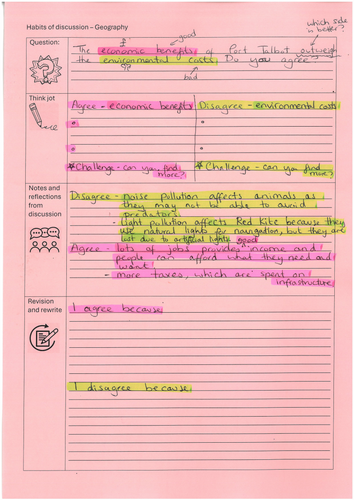 Habits of discussion – Geography
which side
is better?
good
Question:
The economic benefits of Port Talbot outweigh
the environmental costs. Do you agree
bad
Think jot
Agree - economic benefits
Disagree - environmental costs
Challenge - can you find
more?
Challenge - can you find
more?
Notes and
reflections
from
discussion
Disagree - noise pollution affects animals as
they may not be able to avoid
predators.
- Light pollution affects Red Kite because they
use natural lights for navigation, but they are
lost due to artificial lights
good
Agree - lots of jobs provides income and
people can afford what they need and
want!
- more taxes, which are spent on
infrastructure
Revision
and rewrite
I agree because
I disagree because